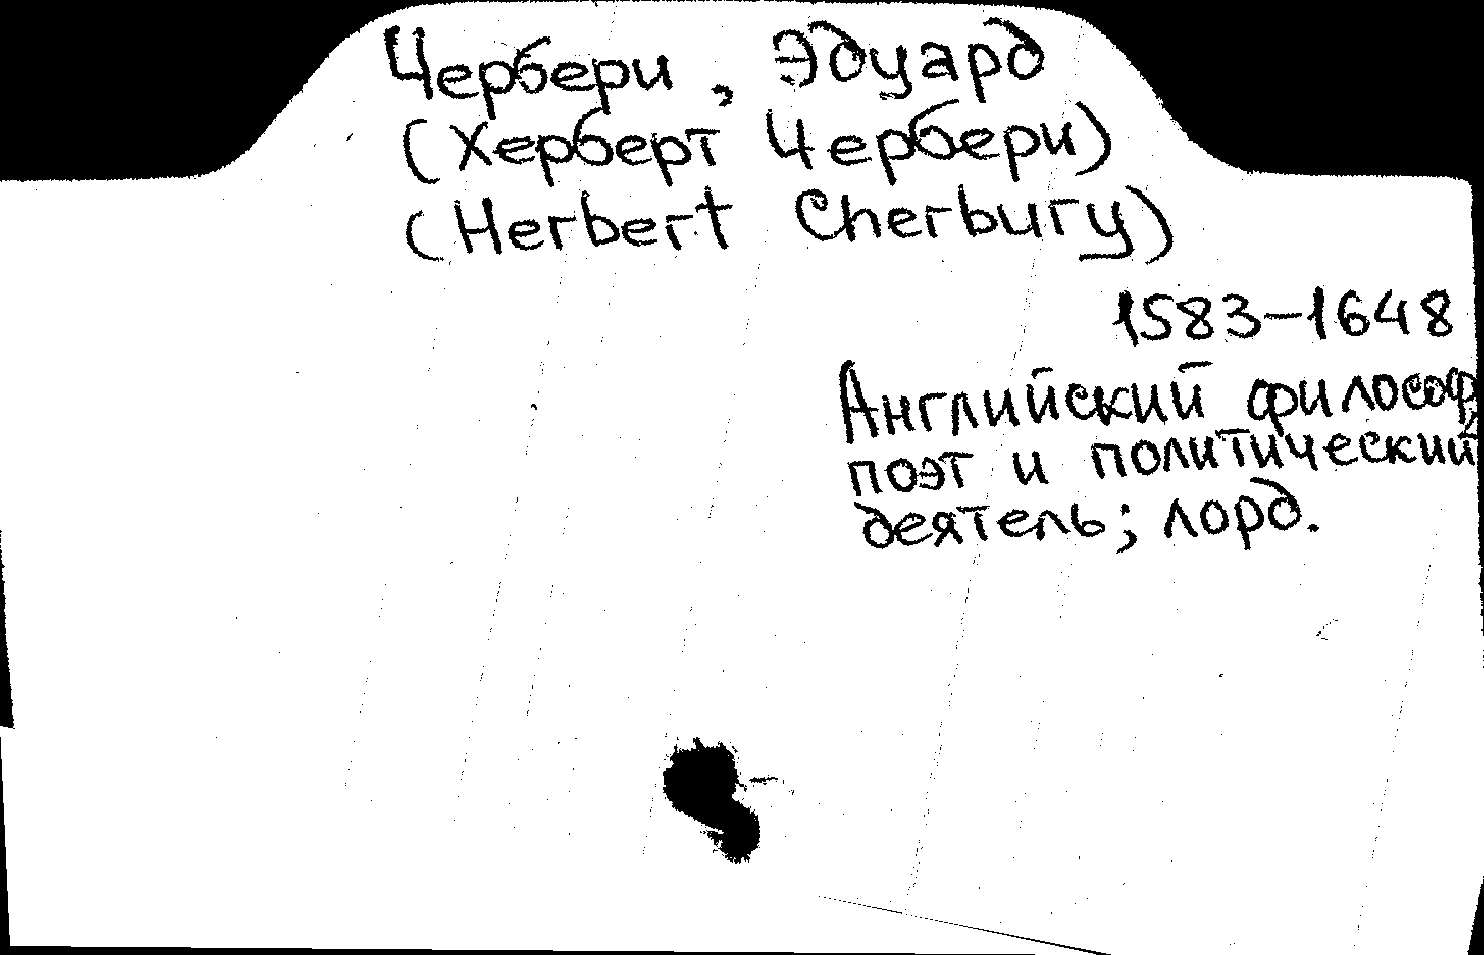 Чербери, Эдуард
(Херберт Чербери)
(Herbert Cherbury)
1583-1648
Английский философ,
поэт и политический
деятель; лорд.